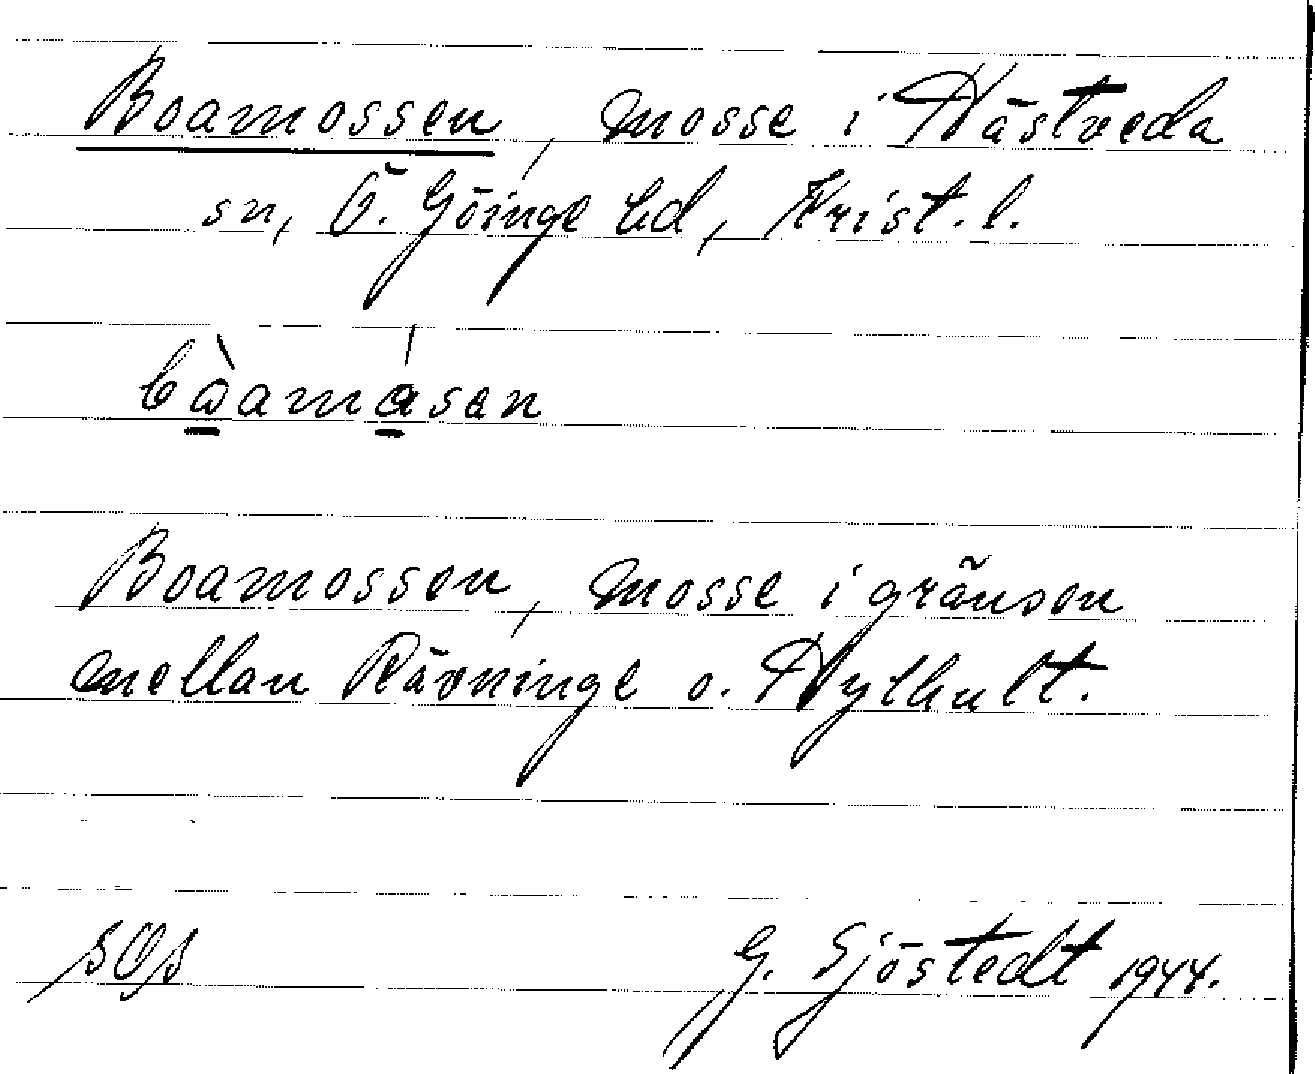 Boamossen, mosse i Hästveda
sn, Ö. Göinge hd, Krist. l.
bòamásen
Boamossen, mosse i gränsen
mellan Rävninge o. Hylhult.
G. Sjöstedt 1944.